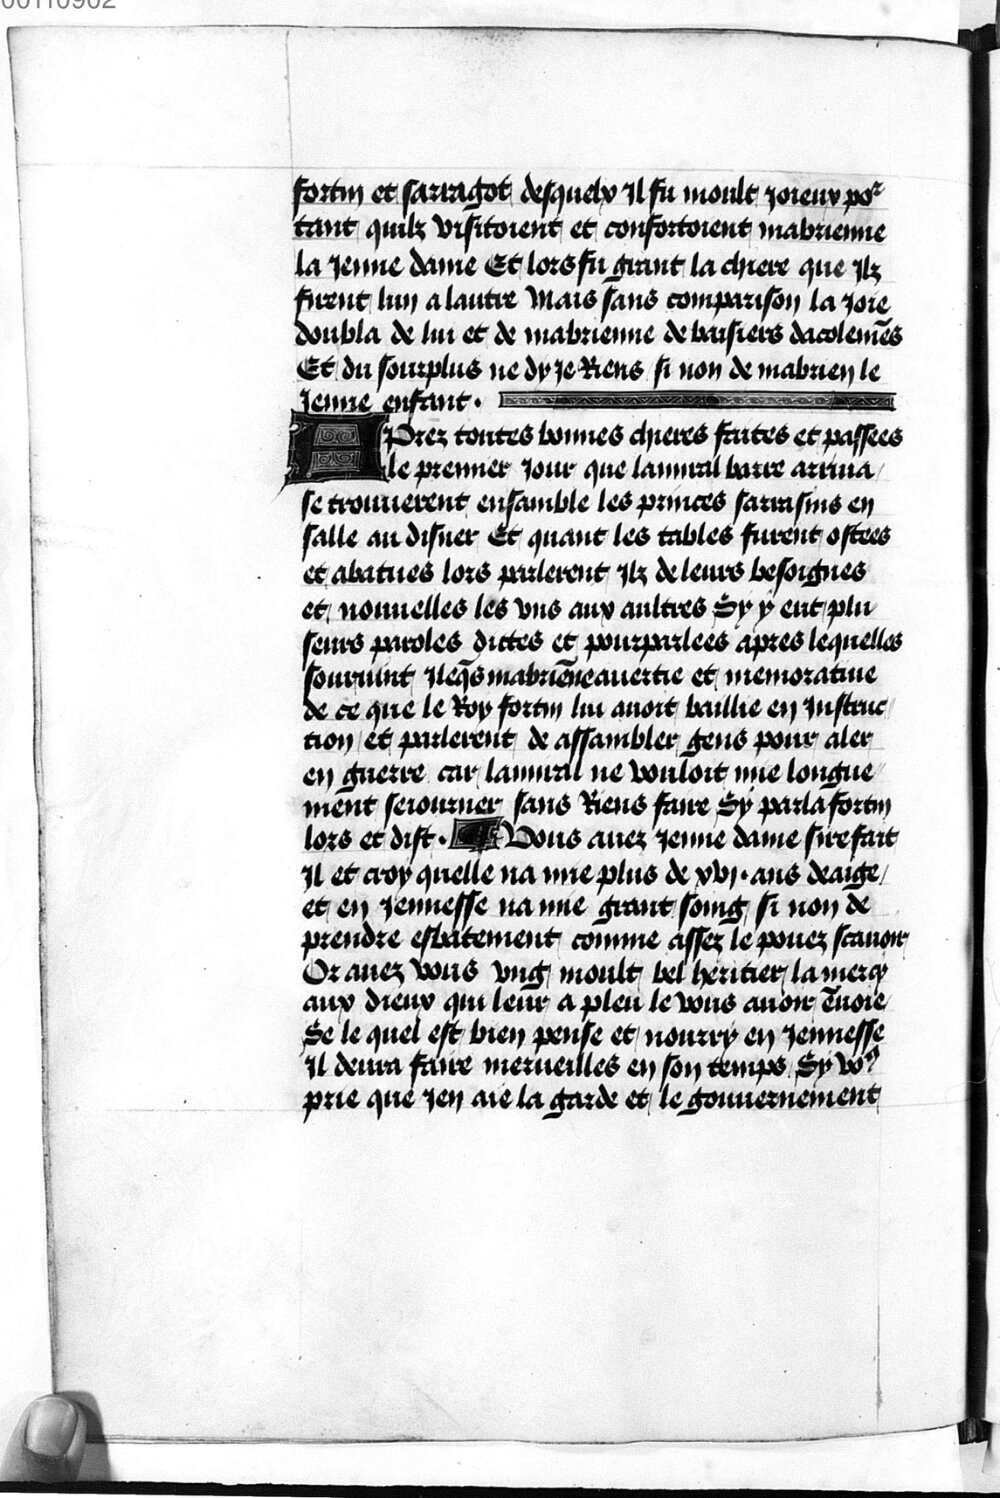 00110902
fortin et sarragot desquelx Il fu moult Joieux poʳ
tant quilz visitoient et confortoient mabrienne
la Jenne dame Et lors fu grant la chiere que Ilz
firent lun a lautre Mais sans comparison la Joie
doubla de lui et de mabrienne de baisiers dacolem̄es
Et du sourplus ne dy Je Riens si non de mabrien le
Jenne enfant .
APrez toutes bonnes chieres faites et passees
le premier Jour que lamiral barre arriua
se trouuerent ensamble les princes sarrasins en
salle au disner Et quant les tables furent ostees
et abatues lors parlerent Ilz de leurs besoignes
et nouuelles les vns aux aultres Sy y eut plu
seurs paroles dictes et pourparlees apres lequelles
souruint Jleq̄s mabriēne auertie et memoratiue
de ce que le Roy fortin lui auoit baillie en Instruc
tion et parlerent de assambler gens pour aler
en guerre car lamiral ne vouloit mie longue
ment seiourner sans Riens faire Sy parla fortin
lors et dist . Vous auez Jenne dame sire fait
Il et croy quelle na mie plus de xvj . ans deaige
et en Jennesse na mie grant soing si non de
prendre esbatement comme assez le pouez scauoir
Or auez vous vng moult bel heritier la mercy
aux dieux qui leur a pleu le vous auoir ēuoie
Se le quel est bien pense et nourry en Jennesse
Il deura faire merueilles en son temps Sy voꝰ
prie que Jen aie la garde et le gouuernement